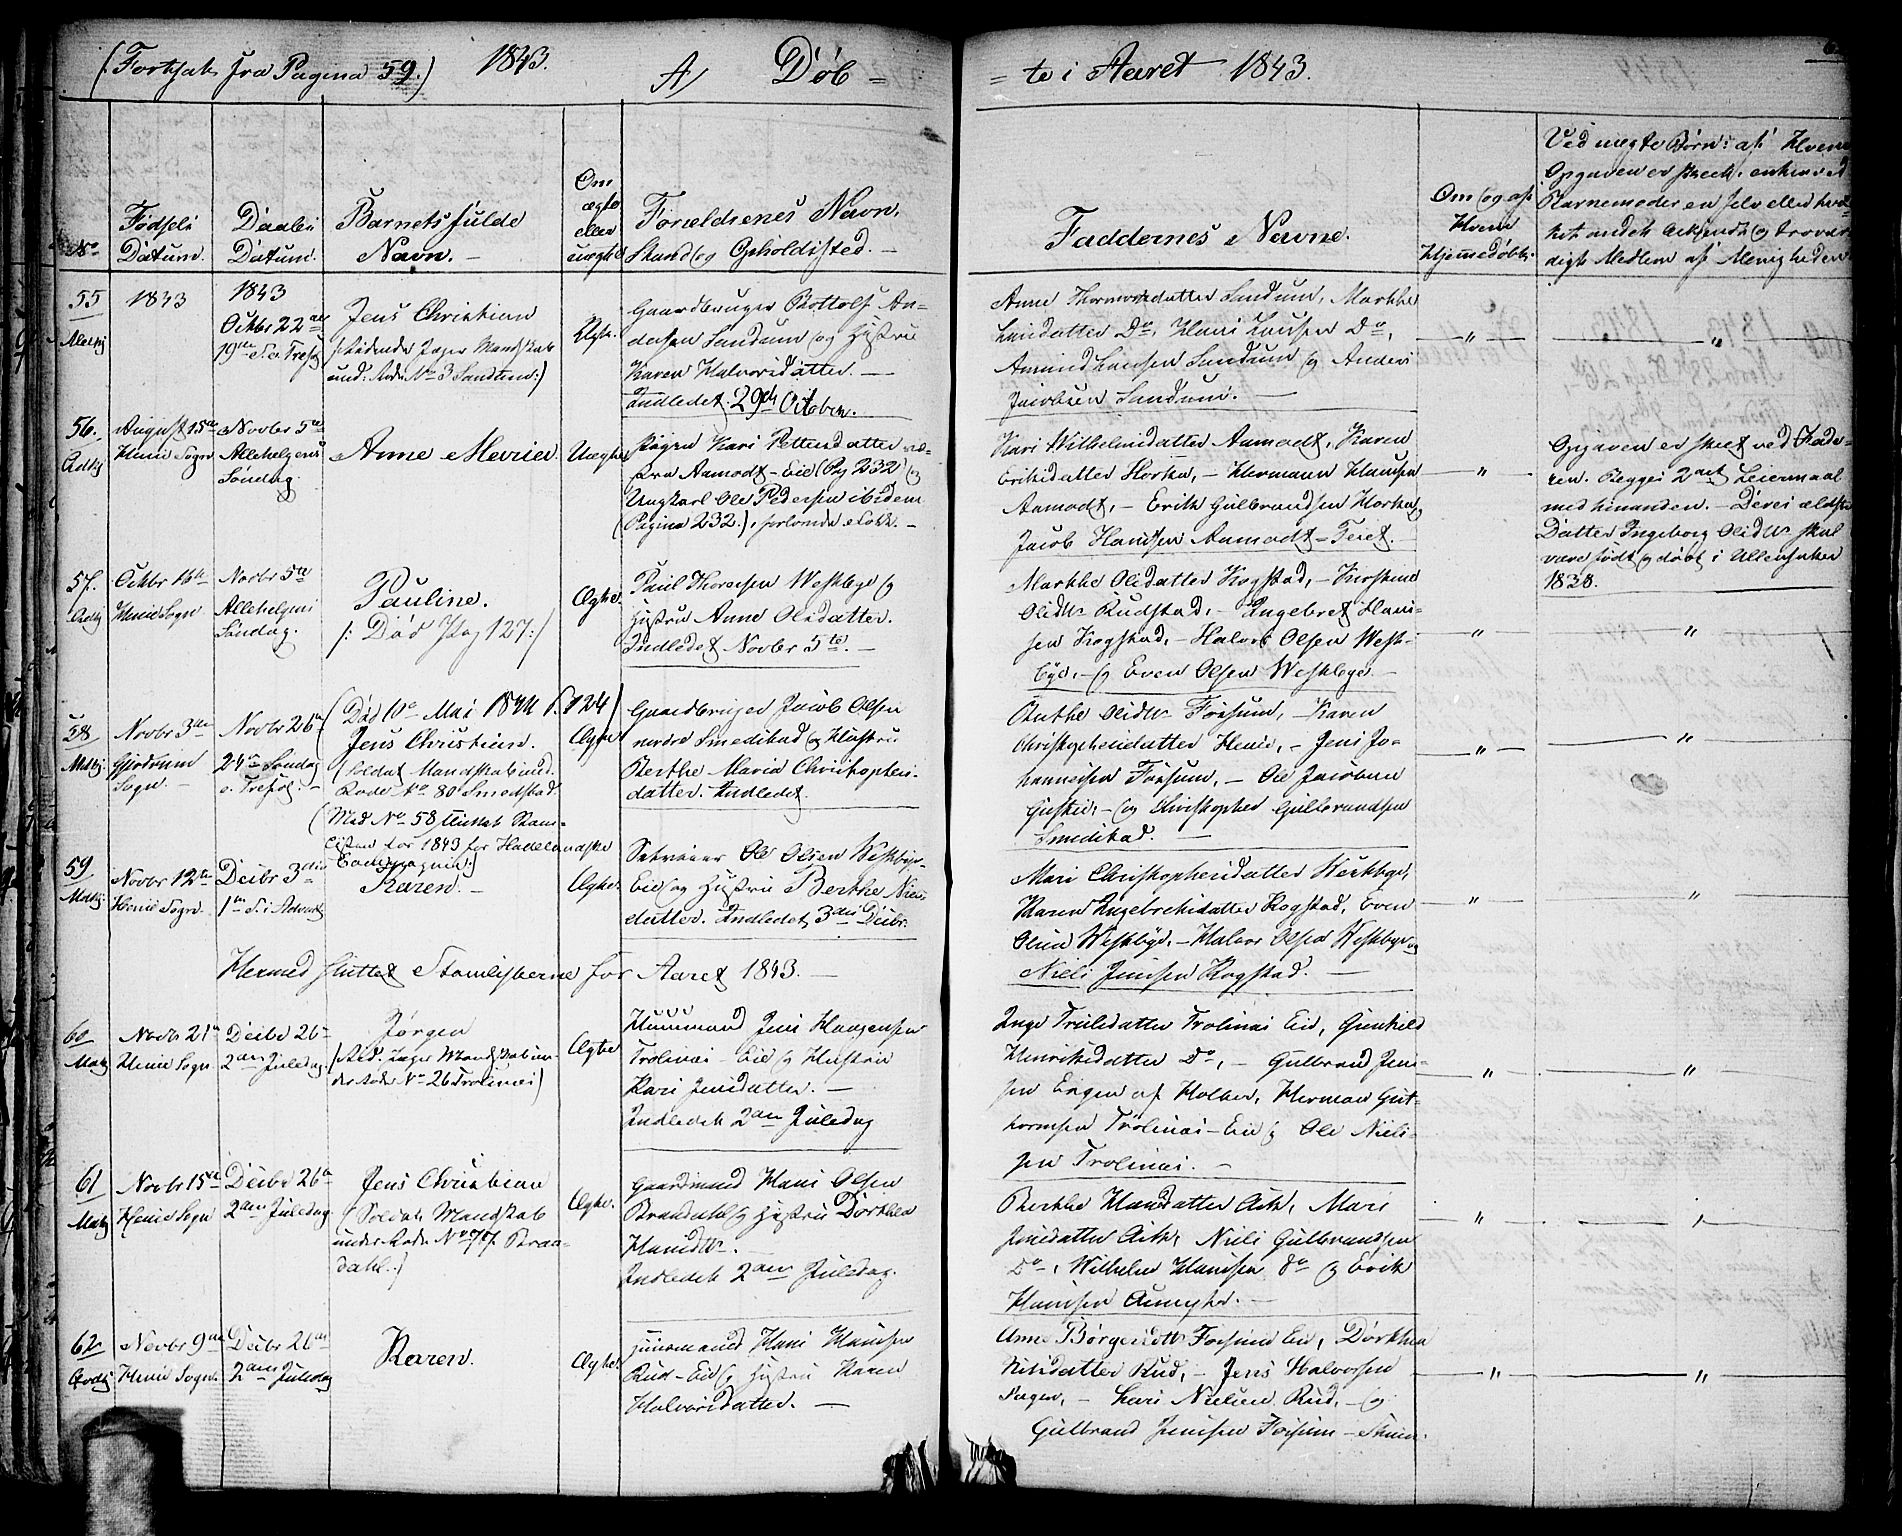 (Fortsat fra Pagina 59.) 1843. A) Døb-
-te i Aaret 1843.
No
Fødsels Datum.
Daabs Datum.
Barnets fulde Navn.
Om ægte eller uægte
Forældrenes Navn, Stand og Opholdssted.
Faddernes Navne.
Om og af Hvem Hjemmedøbt.
Ved uægte Børn: af Hvem
Opgaven er skeet, enten ved
Barnemoderen selv eller hvil-
ket andet bekjendt og trovær-
digt Medlem af Menigheden
55
1843
1843
Octbr 22de
19de S. e. Tref.
Jens Christian
under Rode No 3 Sandum)
Ægte.
Gaardbruger Bottolf An-
dersen Sandum og Hustru
Karen Halvorsdatter. —
Indledet 29de October.
Anne Thormodsdatter Sandum, Marthe
Larsdatter Do, Hans Hansen Do,
Amund Hansen Sandum og Anders
Jacobsen Sandum. —
56.
August 15de
Henie Sogn
Novbr 5te
Allehelgens
Søndag
Anne Marie
Uægte
Pigen Kari Pettersdatter
fra Aamodt-Eie (Pag 232) og
Ungkarl Ole Pedersen ibidem
(Pagina 232.), forlovede Folk. —
Kari Wilhelmsdatter Aamodt, Karen
Eriksdatter Horka, — Hermann Hansen
Aamodt, — Erik Gulbrandsen Horka og
Jacob Hansen Aamodt-Teret.
Opgaven er skeet ved Fade-
ren. Begges 2det Leiermaal
med hinanden. — Deres ældste
Datter Ingeborg Olsdtr skal
være født og døbt i Ullensaker
1838.
57.
Octbr 16de
Henie Sogn
Novbr 5te
Allehelgens
Søndag.
Pauline.
/: Død Pag 127:/
Ægte.
Paul Thoresen Westbye og
Hustru Anne Olsdatter.
Indledet Novbr 5te. —
Marthe Olsdatter Kogstad, — Kirstine
Olsdtr Rudstad, — Engebret Han-
sen Kogstad, — Halvor Olsen West-
bye, — og Even Olsen Westbye.
58
Novbr 3die
Gjerdrum
Sogn. —
Novbr 26de
24de Søndag
e. Tref. —
(Død 10de Mai 1844 P. 124)
Jens Christian.
(Soldat Mandskab und.
Rode No 80 Smedstad
(Med No 58 sluttet Stam-
listen for 1843 for Hadelandske
Compagnie:)
Ægte
Gaardbruger Jacob Olsen
nordre Smedstad og Hustru
Berthe Maria Christophers-
datter. Indledet
Berthe Olsdtr Fossum, — Karen
Christophersdatter Henie, — Jens Jo-
hannesen Fossum, — Ole Jacobsen
— og Christopher Gulbrandsen
Smedstad. —
59
Novbr 12te
Henie Sogn.
Decbr 3die
1ste S. i Advent
Karen. —
Ægte.
Ole Olsen Westbye-
Eie og Hustru Berthe Niels-
datter. Indledet 3die Decbr.
Mari Christophersdatter Westbye,
Karen Engebretsdatter Kogstad, Even
Olsen Westbye, — Halvor Olsen Westbye og
Niels Jensen Kogstad. —
Hermed sluttet Stamlisterne for Aaret 1843. —
60
Novbr 21de
Henie Sogn
Decbr 26de
2den Juledag.
Jørgen
der Rode No 26 Trolsnæs)
Ægte
Huusmand Jens Haagensen
Trolsnæs-Eie og Hustru
Kari Jensdatter. —
Indledet 2den Juledag
Inge Trulsdatter Trolsnæs Eie, Gunhild
Henriksdatter Do, — Gulbrand Jen-
sen Engen af Holter, Herman Gut-
tormsen Trolsnæs-Eie og Ole Niels-
sen Trolsnæs. —
61
Novbr 15de
Henie Sogn
Decbr 26de
2den Juledag.
Jens Christian
(Soldat Mandskab
under Rode No 77. Braa-
dahl.)
Ægte.
Gaardmand Hans Olsen
Braadahl og Hustru Dorthea
Hansdtr. —
Indledet 2den Juledag.
Berthe Hansdatter Ask, Mari
Jensdatter Ask, Niels Gulbrandsen
Do, Wilhelm Hansen do og Erik
Hansen
62
Novbr 9de
Henie Sogn.
Decbr 26de
2den Juledag
Karen.
Ægte.
Huusmand Hans Hansen
Rud-Eie og Hustru Karen
Halvorsdatter. —
Anne Børgersdtr Fossum Eie, Dorthea
Nilsdatter Rud, — Jens Halvorsen
— Lars Nielsen Rud, — og
Gulbrand Jensen Fossum